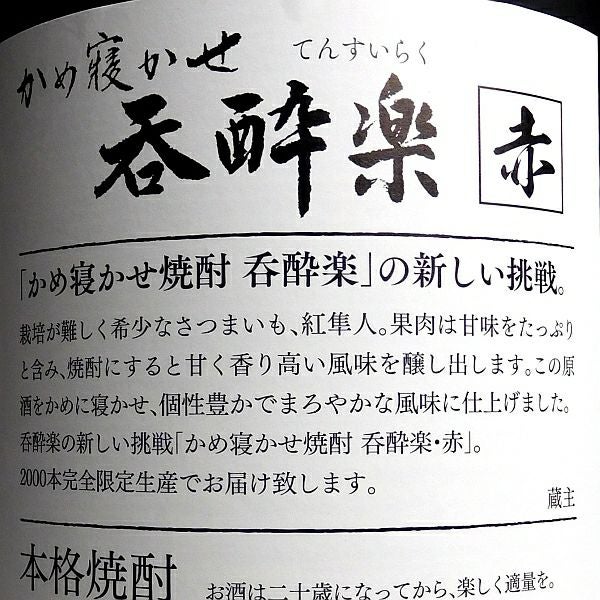 かめ寝かせ
てんすいらく
呑酔楽 赤
「かめ寝かせ焼酎 呑酔楽」の新しい挑戦。
栽培が難しく希少なさつまいも、紅隼人。果肉は甘味をたっぷり
と含み、焼酎にすると甘く香り高い風味を醸し出します。この原
酒をかめに寝かせ、個性豊かでまろやかな風味に仕上げました。
呑酔楽の新しい挑戦「かめ寝かせ焼酎 呑酔楽・赤」。
2000本完全限定生産でお届け致します。
蔵主
本格焼酎
お酒は二十歳になってから、楽しく適量を。